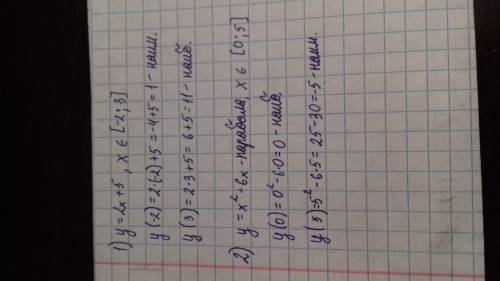 1) y = 2x+5, x ∈ [-2; 3]
y(-2) = 2·(-2)+5 = -4+5 = 1 - наим.
y(3) = 2·3+5 = 6+5 = 11 - наиб.
2) y = x² - 6x - парабола, x ∈ [0; 5]
y(0) = 0² - 6·0 = 0 - наиб.
y(5) = 5² - 6·5 = 25 - 30 = -5 - наим.